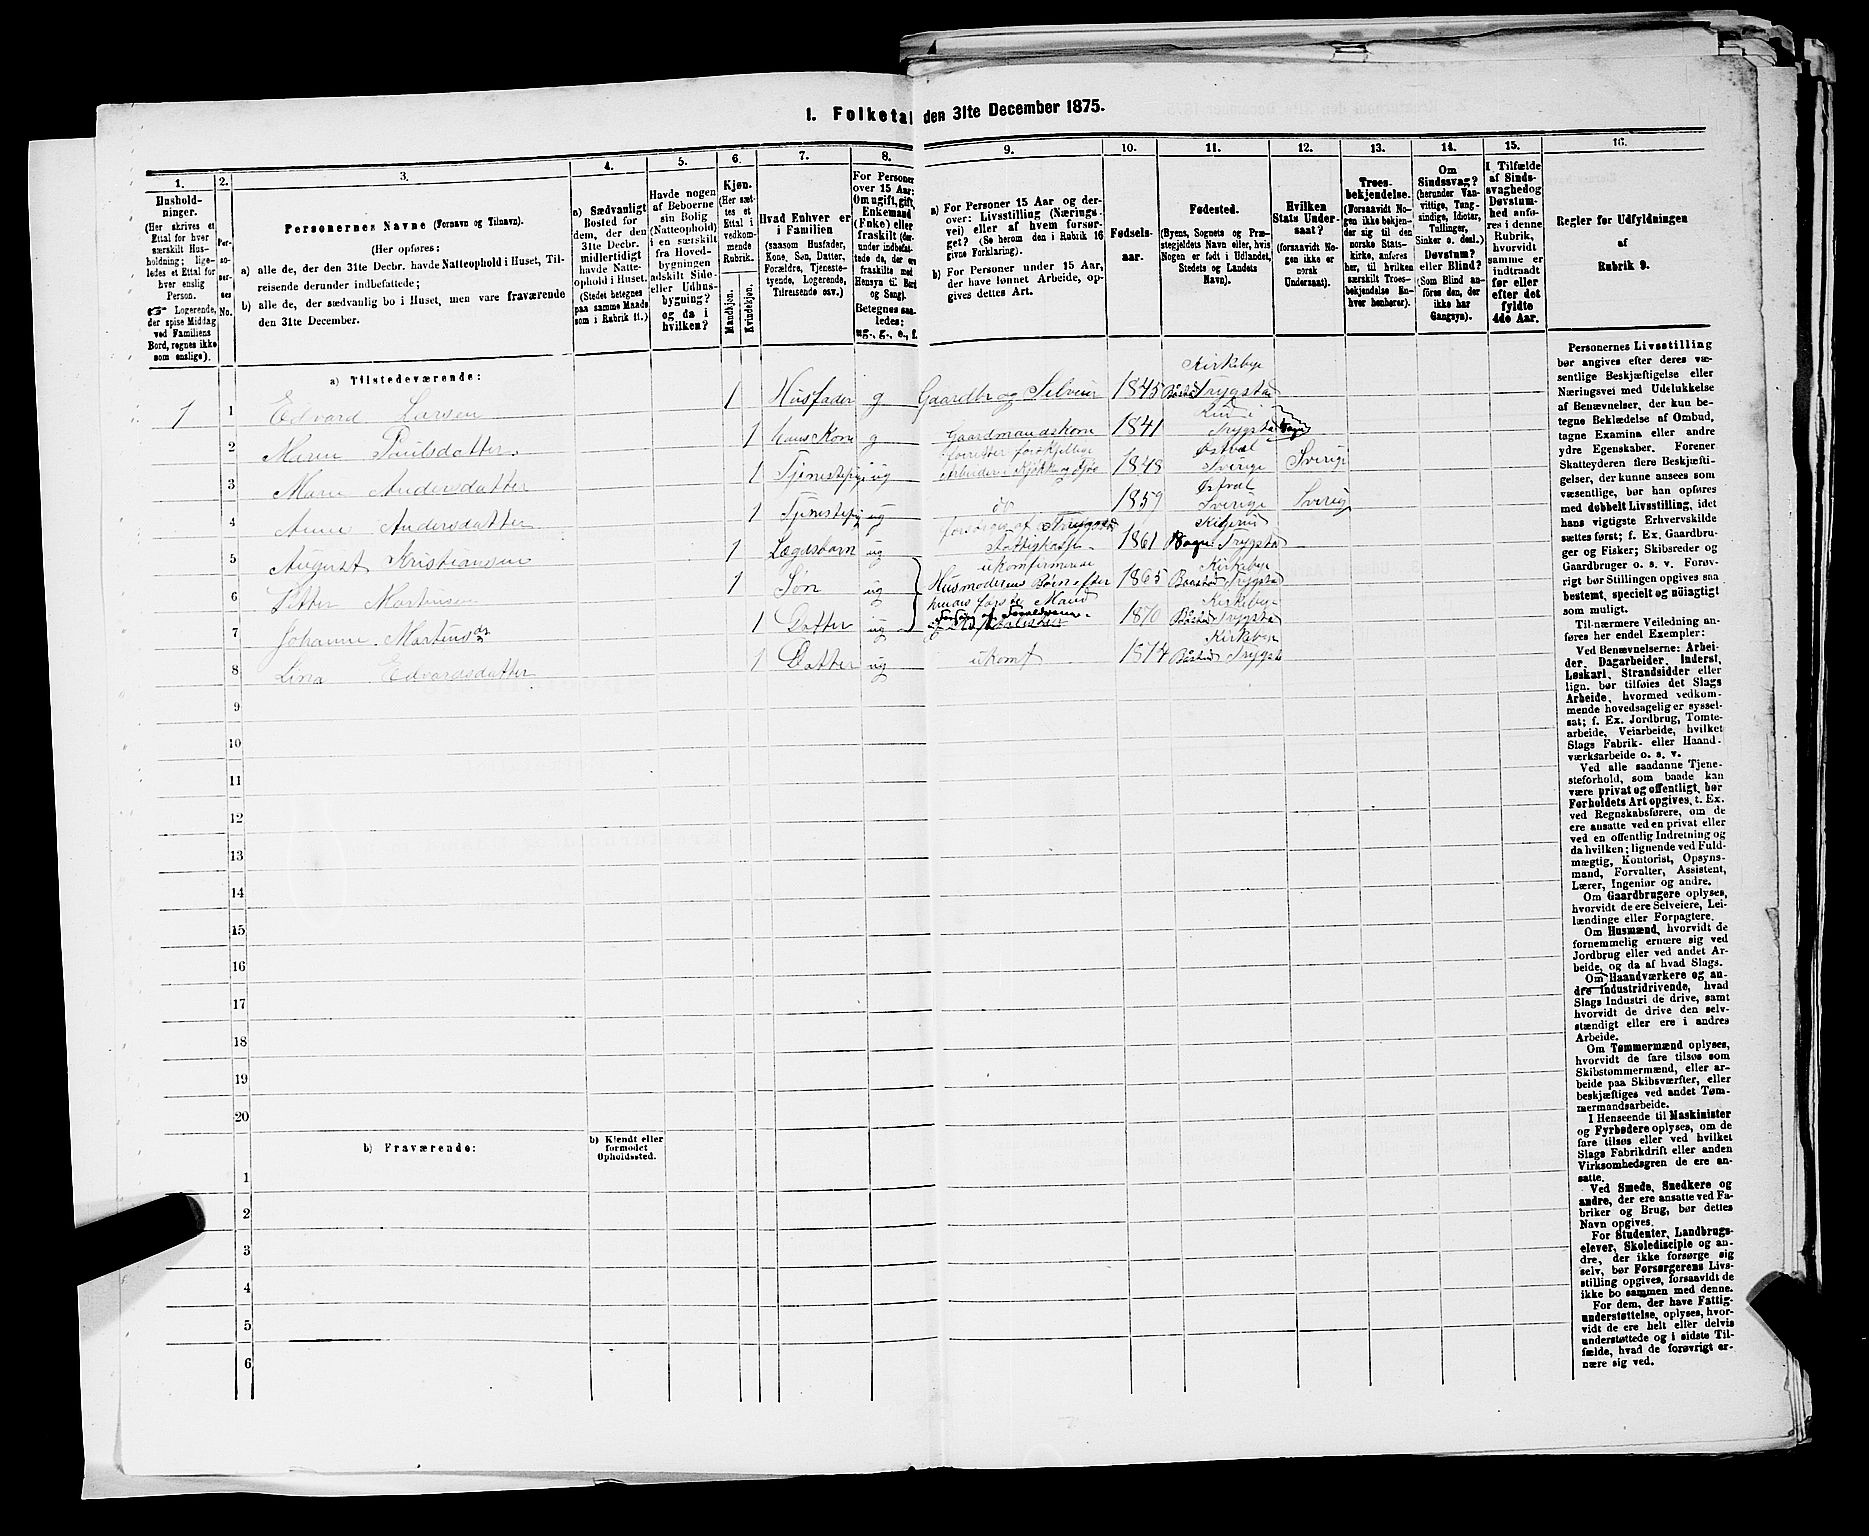 1. Folketal den 31te December 1875.
1.
2.
3.
4.
5.
6.
7.
8.
9.
10.
11.
12.
13.
14.
15.
16.
Hushold-
ninger.
(Her skrives et
Ettal for hver
særskilt Hus-
holdning; lige-
ledes et Ettal for
hver enslig
Person.
☞ Logerende,
der spise Middag
ved Familiens
Bord, regnes ikke
som enslige).
Per-
so-
ner-
nes
No.
Personernes Navne (Fornavn og Tilnavn).
(Her opføres:
a) alle de, der den 31te Decbr. havde Natteophold i Huset, Til-
reisende derunder indbefattede;
b) alle de, der sædvanlig bo i Huset, men vare fraværende
den 31te December.
a) Sædvanligt
Bosted for
dem, der den
31te Decbr.
midlertidigt
havde Natte-
ophold i Huset.
(Stedet betegnes
paa samme Maade
som i Rubrik 11.)
Havde nogen
af Beboerne
sin Bolig
(Natteophold)
i en særskilt
fra Hoved-
bygningen
adskilt Side-
eller Udhus-
bygning?
og da i
hvilken?
Kjøn.
(Her sæt-
tes et
Ettal i
vedkom-
mende
Rubrik.
Mandkjøn.
Kvindekjøn.
Hvad Enhver er
i Familien
(saasom Husfader,
Kone, Søn, Datter,
Forældre, Tjeneste-
tyende, Logerende,
Tilreisende osv.)
For Personer
over 15 Aar:
Om ugift, gift,
Enkemand
(Enke) eller
fraskilt (der-
under indbefat-
tede de, der ere
fraskilte med
Hensyn til Bord
og Seng).
Betegnes saa-
ledes:
ug., g., e., f.
a) For Personer 15 Aar og der-
over: Livsstilling (Nærings-
vei) eller af hvem forsør-
get? (Se herom den i Rubrik 16
givne Forklaring).
b) For Personer under 15 Aar,
der have lønnet Arbeide, op-
gives dettes Art.
Fødsels-
aar.
Fødested.
(Byens, Sognets og Præ-
stegjeldets Navn eller, hvis
Nogen er født i Udlandet,
Stedets og Landets
Navn).
Hvilken
Stats Under-
saat?
(forsaavidt No-
gen ikke er
norsk
Undersaat).
Troes-
bekjendelse.
(Forsaavidt No-
gen ikke bekjen-
der sig til den
norske Stats-
kirke, anføres
her, til hvilken
særskilt Troes-
bekjendelse En-
hver henhører).
Om
Sindssvag?
(herunder Van-
vittige, Tung-
sindige, Idioter,
Tullinger,
Sinker o. desl.)
Døvstum?
eller Blind?
(Som Blind an-
føres den, der
ikke har
Gangsyn).
I Tilfælde
af Sinds-
svaghed og
Døvstum-
hed anfø-
res i denne
Rubrik,
hvorvidt
samme er
indtraadt
før eller
efter det
fyldte
4de Aar.
Regler for Udfyldningen
af
Rubrik 9.
a) Tilstedeværende:
1 1 Edvard Larsen 1 Husfader g Gaardbr og Selveier 1845 Kirkebye Båstad Trygstad
2 Maren Poulsdatter 1 hans Kone g Gaardmandskone 1841 i Trygstad Sogn
3 Maren Andersdatter 1 Tjenestepige ug forskjellige Arbeider i Kjøkken og Fjøs 1848 Sverige Sverige
4 Anne Andersdatter 1 Tjenestepig ug do 1859 Sverige Sverig
5 August Kristiansen 1 Lægdsbarn ug forsørges af Trygstad Fattigkasse 1861 Sogn Trygstad
6 Petter Martinsen 1 Søn ug ukonfirmerede Husmoderens Børn efter 1865 Kirkebye Baastad Trygstad
7 Johanne Martinsdr 1 Datter ug hendes første Mand 1870 Kirkebye Båstad Trygstad
8 Lina Edvardsdatter 1 Datter ug ukomf 1874 Kirkebye Båstad Trygsta
9
10
11
12
13
14
15
16
17
18
19
20
b) Fraværende:
b) Kjendt eller
formodet
Opholdssted.
1
2
3
4
5
6
Personernes Livsstilling
bør angives efter deres væ-
sentlige Beskjæftigelse eller
Næringsvei med Udelukkelse
af Benævnelser, der kun be-
tegne Beklædelse af Ombud,
tagne Examina eller andre
ydre Egenskaber. Forener
Skatteyderen flere Beskjæfti-
gelser, der kunne ansees som
væsentlige, bør han opføres
med dobbelt Livsstilling, idet
hans vigtigste Erhvervskilde
sættes først; f. Ex. Gaardbru-
ger og Fisker; Skibsreder og
Gaardbruger o. s. v. Forøv-
rigt bør Stillingen opgives saa
bestemt, specielt og nøiagtigt
som muligt.
Til nærmere Veiledning an-
føres her endel Exempler:
Ved Benævnelserne: Arbei-
der, Dagarbeider, Inderst,
Løskarl, Strandsidder eller
lign. bør tilføies det Slags
Arbeide, hvormed vedkom-
mende hovedsagelig er syssel-
sat; f. Ex. Jordbrug, Tomte-
arbeide, Veiarbeide, hvilket
Slags Fabrik- eller Haand-
værksarbeide o. s. v.
Ved alle saadanne Tjene-
steforhold, som baade kan
være privat og offentligt, bør
Forholdets Art opgives, t. Ex.
ved Regnskabsførere, om de
ere ansatte ved en privat eller
ved en offentlig Indretning og
da hvilken; lignende ved Fuld-
mægtig, Kontorist, Opsyns-
mand, Forvalter, Assistent,
Lærer, Ingeniør og andre.
Om Gaardbrugere oplyses,
hvorvidt de ere Selveiere, Lei-
lændinge eller Forpagtere.
Om Husmænd, hvorvidt de
fornemmelig ernære sig ved
Jordbrug eller ved andet Ar-
beide, og da af hvad Slags.
Om Haandværkere og an-
dre Industridrivende, hvad
Slags Industri de drive, samt
hvorvidt de drive den selv-
stændigt eller ere i andres
Arbeide.
Om Tømmermænd oplyses,
hvorvidt de fare tilsøs som
Skibstømmermænd, eller ar-
beide paa Skibsværfter, eller
beskjæftiges ved andet Tøm-
mermandsarbeide.
I Henseende til Maskinister
og Fyrbødere oplyses, om de
fare tilsøs eller ved hvilket
Slags Fabrikdrift eller anden
Virksomhedsgren de ere an-
satte.
Ved Smede, Snedkere og
andre, der ere ansatte ved Fa-
briker og Brug, bør dettes
Navn opgives.
For Studenter, Landbrugs-
elever, Skoledisciple og an-
dre, der ikke forsørge sig
selv, bør Forsørgerens Livs-
stilling opgives, forsaavidt de
ikke bo sammen med denne.
For dem, der have Fattig-
understøttelse, oplyses, hvor-
vidt de ere helt eller delvis
understøttede og i sidste Til-
fælde, hvad de forøvrigt er-
nære sig ved.